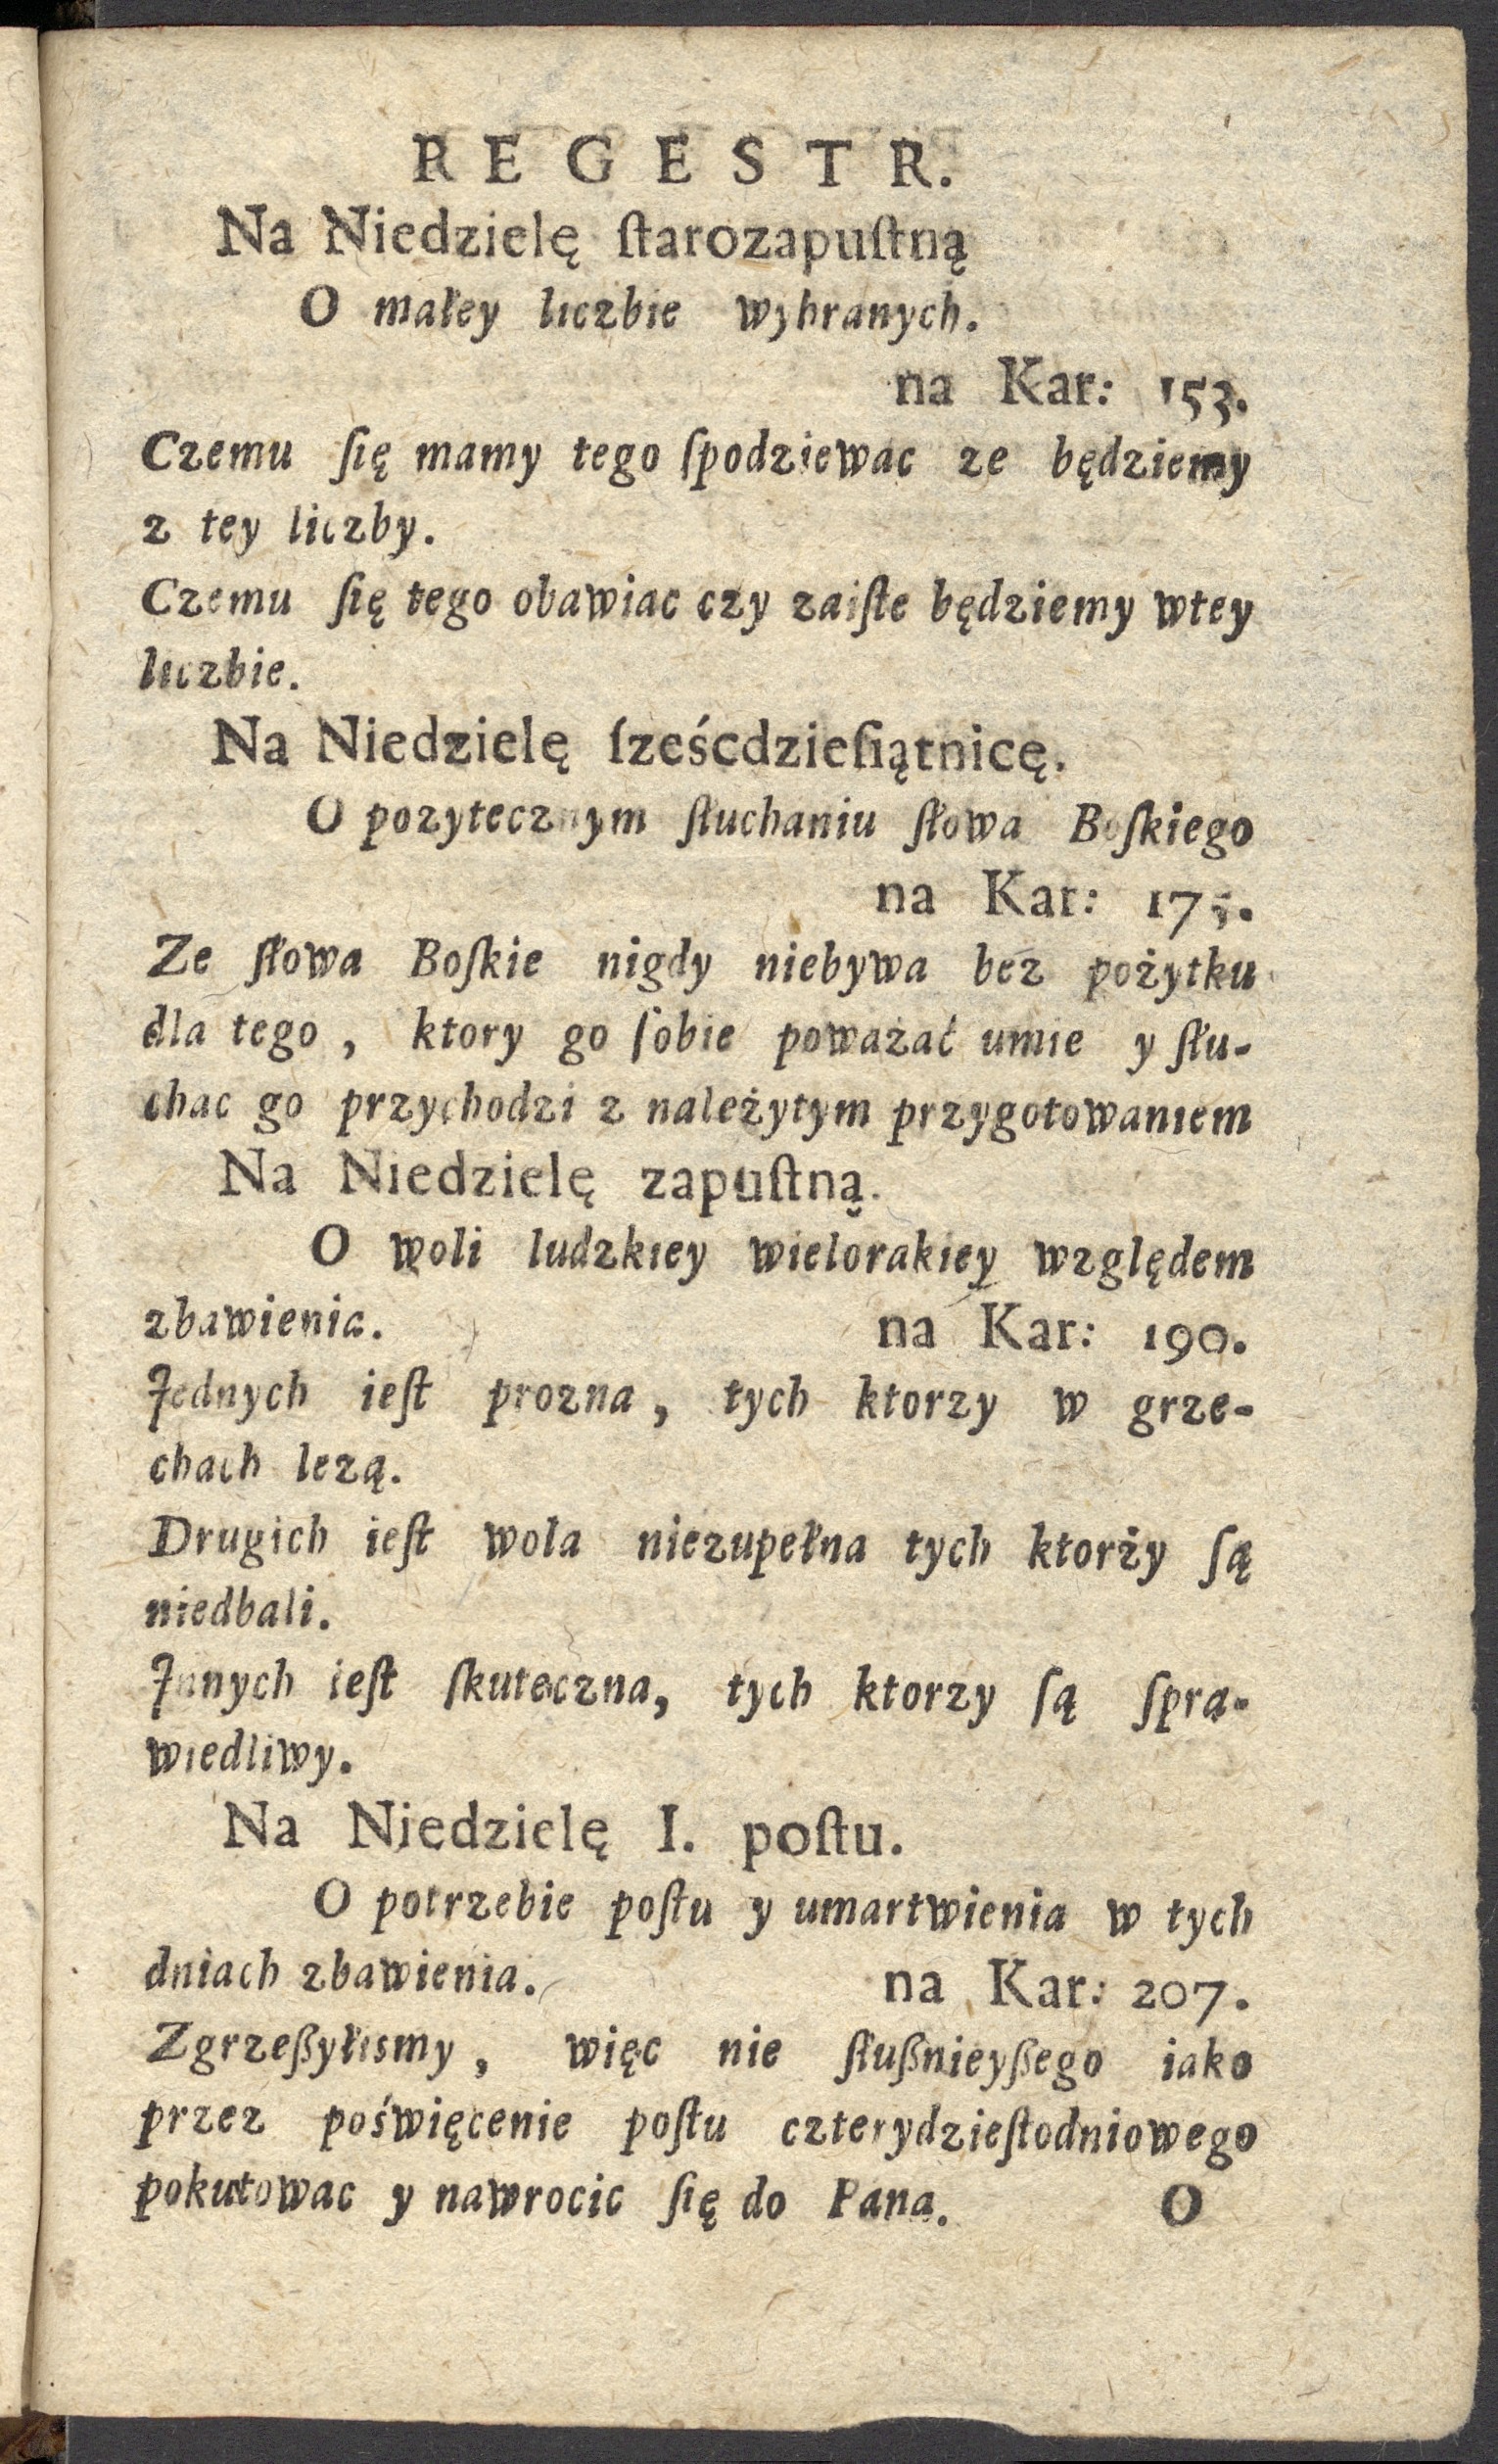 REGESTR.
Na Niedzielę ſtarozapuſtną
O małey liczbie wybranych.
na Kar: 153.
Czemu ſię mamy tego ſpodziewac ze będziemy
z tey liczby.
Czemu ſię tego obawiac czy zaiſte będziemy wtey
liczbie.
Na Niedzielę ſześcdzieſiątnicę.
O pozytecznym ſłuchaniu ſłowa Boſkiego
na Kar: 175.
Ze ſłowa Boſkie nigdy niebywa bez pożytku
dla tego, ktory go ſobie poważać umie y ſłu-
chac go przychodzi z należytym przygotowaniem
Na Niedzielę zapuſtną.
O woli ludzkiey wielorakiey względem
zbawienia. na Kar: 190.
Jednych ieſt prozna, tych ktorzy w grze-
chach lezą.
Drugich ieſt wola niezupełna tych ktorży ſą
niedbali.
Jnnych ieſt ſkuteczna, tych ktorzy ſą ſpra-
wiedliwy.
Na Niedzielę I. poſtu.
O potrzebie poſtu y umartwienia w tych
dniach zbawienia. na Kar: 207.
Zgrzeßyłismy, więc nie ſłußnieyßego iako
przez poświęcenie poſtu czterydzieſtodniowego
pokutowac y nawrocic ſię do Pana. O